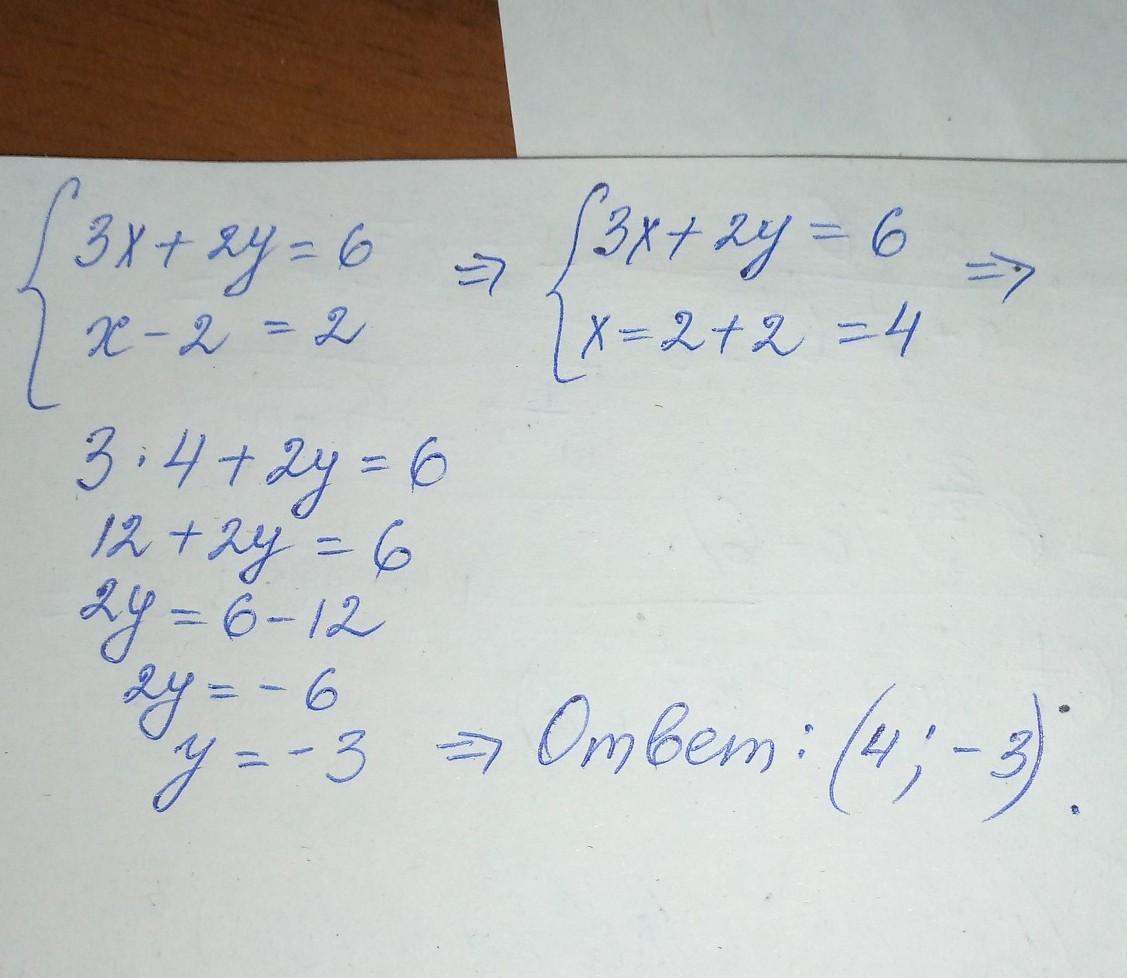 { 3x + 2y = 6 ⇒ { 3x + 2y = 6 ⇒
x - 2 = 2 x = 2 + 2 = 4
3 · 4 + 2y = 6
12 + 2y = 6
2y = 6 - 12
2y = - 6
y = - 3 ⇒ Ответ: (4; - 3).